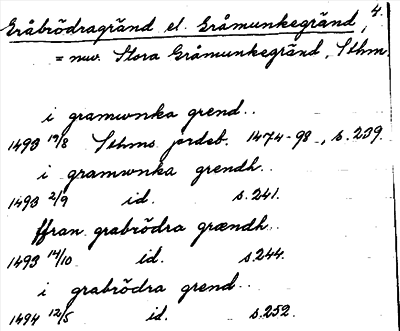 Gråbrödragränd el. Gråmunkegränd, 4.
= nuv. Stora Gråmunkegränd, Sthm.
i gramwnka grend..
1493 19/8 Sthms jordeb. 1474-98, s.239.
i gramwnka grendh..
1493 2/9 id. s.241.
ffran grabrödra grændh..
1493 14/10 id. s.244.
i grabrödra grend..
1494 12/5 id. s.252.